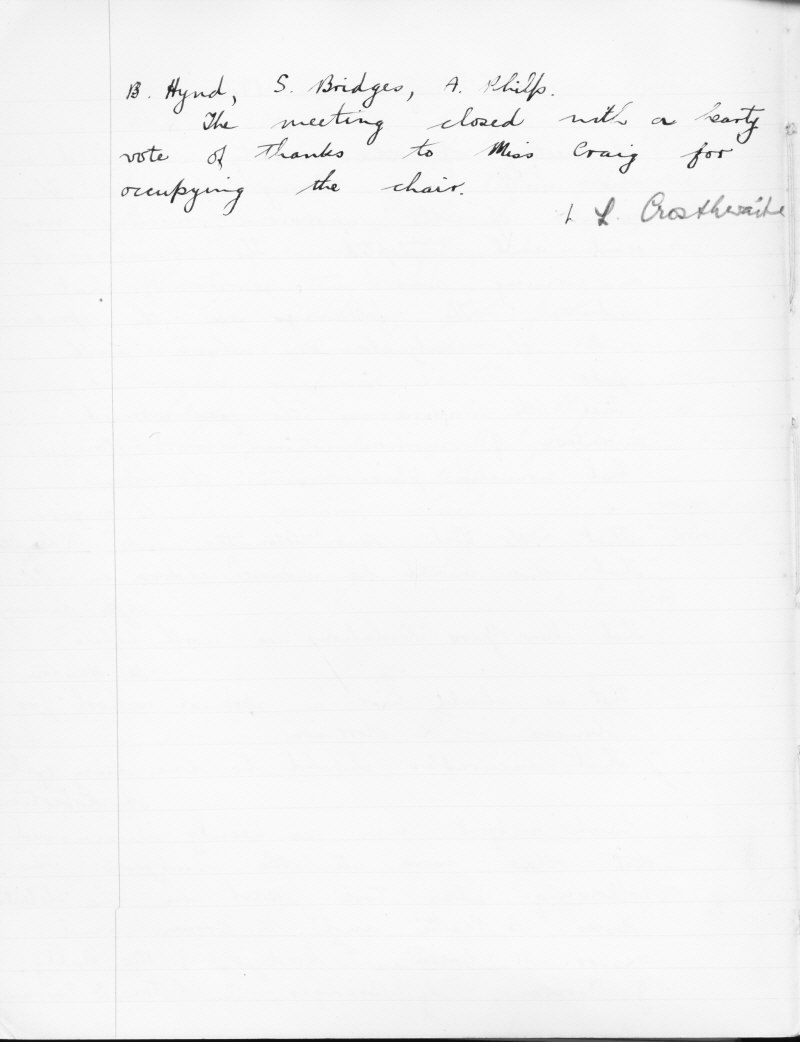 B. Hynd, S. Bridges, A. Philp.
The meeting closed with a hearty
vote of thanks to Miss Craig for
occupying the chair.
L. Crosthwaite